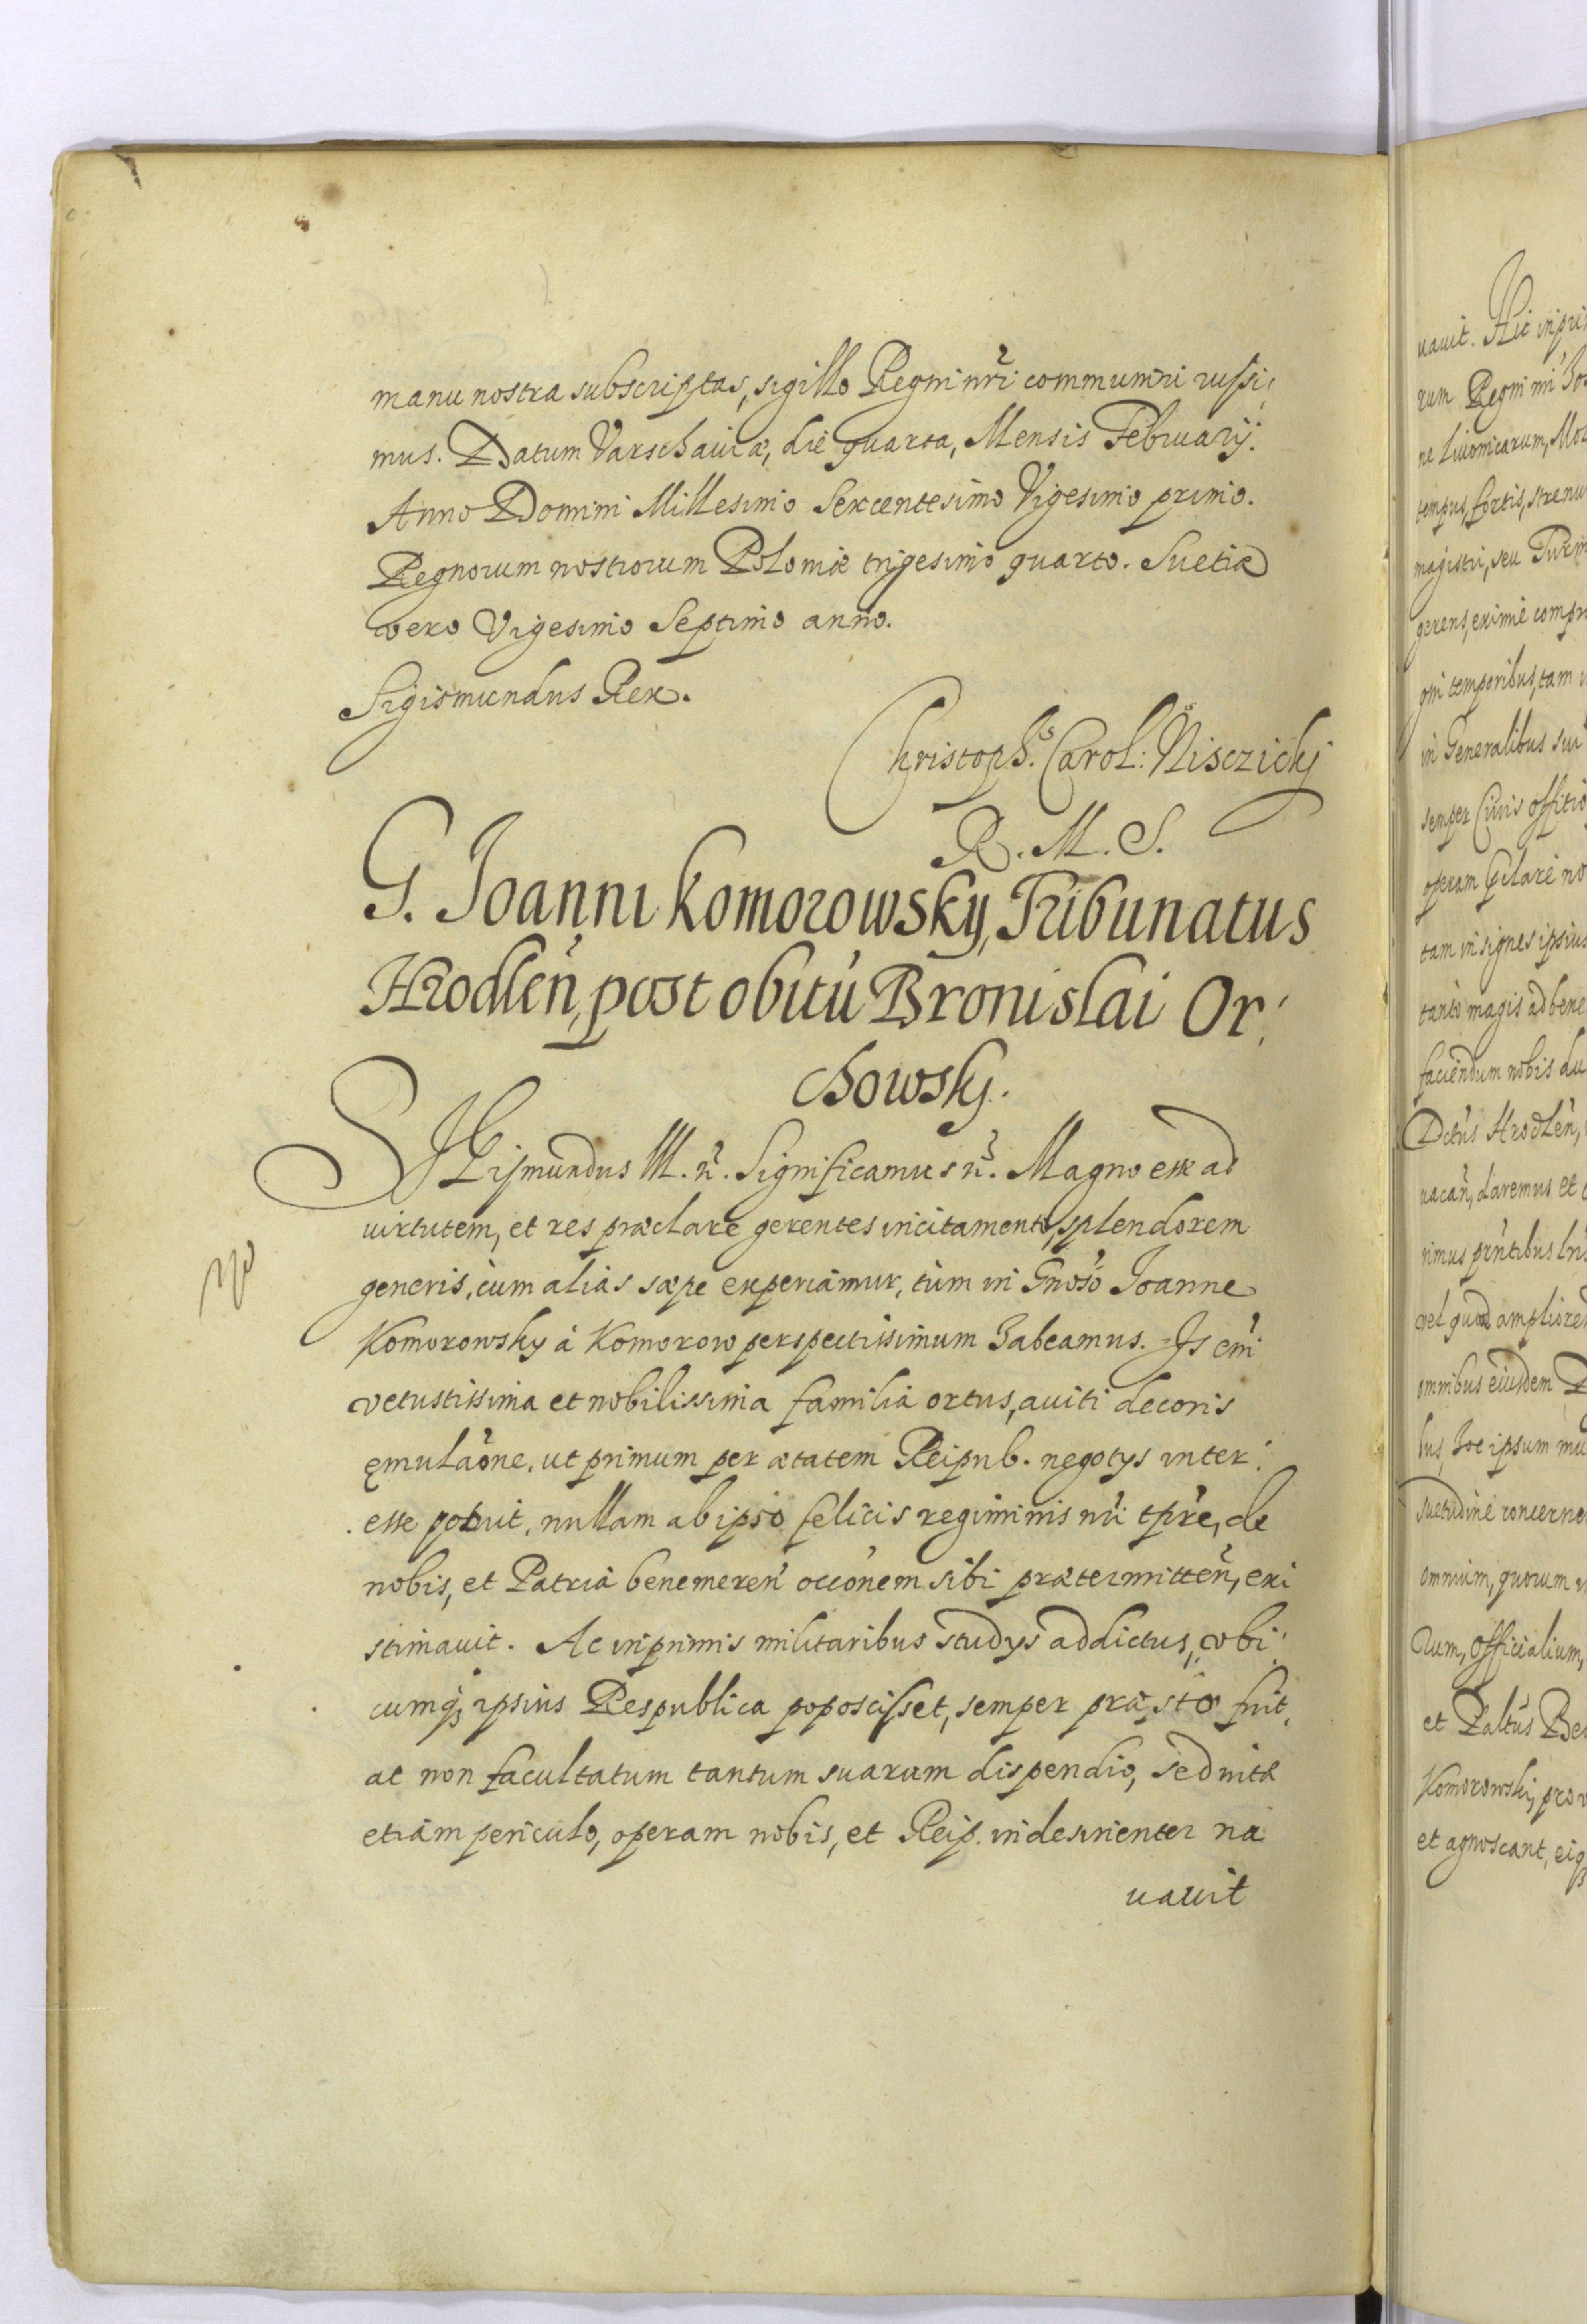 manu nostra subscriptas, sigillo Regni nr̃i communiri iussi,
mus. Datum Varschauiæ, die quarta, Mensis Februarij.
Anno Domini Millesimo Sexcentesimo Vigesimo primo.
Regnorum nostrorum Poloniæ trigesimo quarto. Suetiæ
vero Vigesimo Septimo anno.
Sigismundus Rex.
Christoph.s Carol:s Nisczicky
R. M. S.
G. Joanni Komorowsky, Tribunatus
Hrodleñ, post obitũ Bronislai Or,
chowsky.
SIGismundus III. ñ. Significamus ñ. Magno esse ad
uirtutem, et res præclare gerentes incitamento, splendorem
generis, cum alias sæpe experiamur, tùm in Gnoso Joanne
Komorowsky à Komorow perspectissimum habeamus. Is em̃
vetustissima et nobilissima familia ortus, auiti decoris
ęmulaõne, ut primum per ætatem Reipub. negotys inter:
esse potuit, nullam ab ipso felicis regiminis nr̃i tpr̃e, de
nobis, et Patria benemereñ occõnem sibi prætermitteñ, exi
stimauit. Ac inprimis militaribus studys addictus, vbi:
cumq; ipsius Respublica poposcisset, semper præsto fuit,
ac non facultatum tantum suarum dispendio, sed uitæ
etiam periculo, operam nobis, et Reip. indesinenter na
uauit
uauit. Hic
rum Regni
ne Liuonicarum,
tempus, fortis,
magistri, seu
gerens, eximie
temporibus, tam
in Generalibus
semper Ciuis offitio
operam
tam insignes ipsius
tanto magis ad bene
faciendum nobis
Hrodleñ,
uacañ, daremus et
rimus
vel quod
omnibus eiusdem
hoc ipsum
omnium, quorum
officialium,
et
Komorowski, pro
et agnoscant,